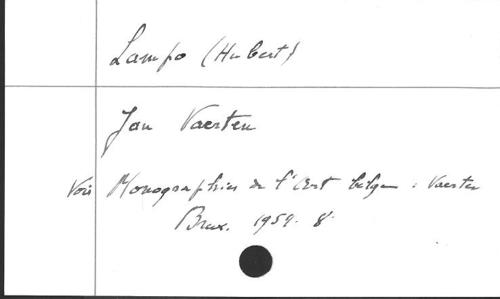 Lampo (Hubert)
Jan Vaerten
Voir Monographies de l'Art belge : Vaerten
Brux. 1959. 8°